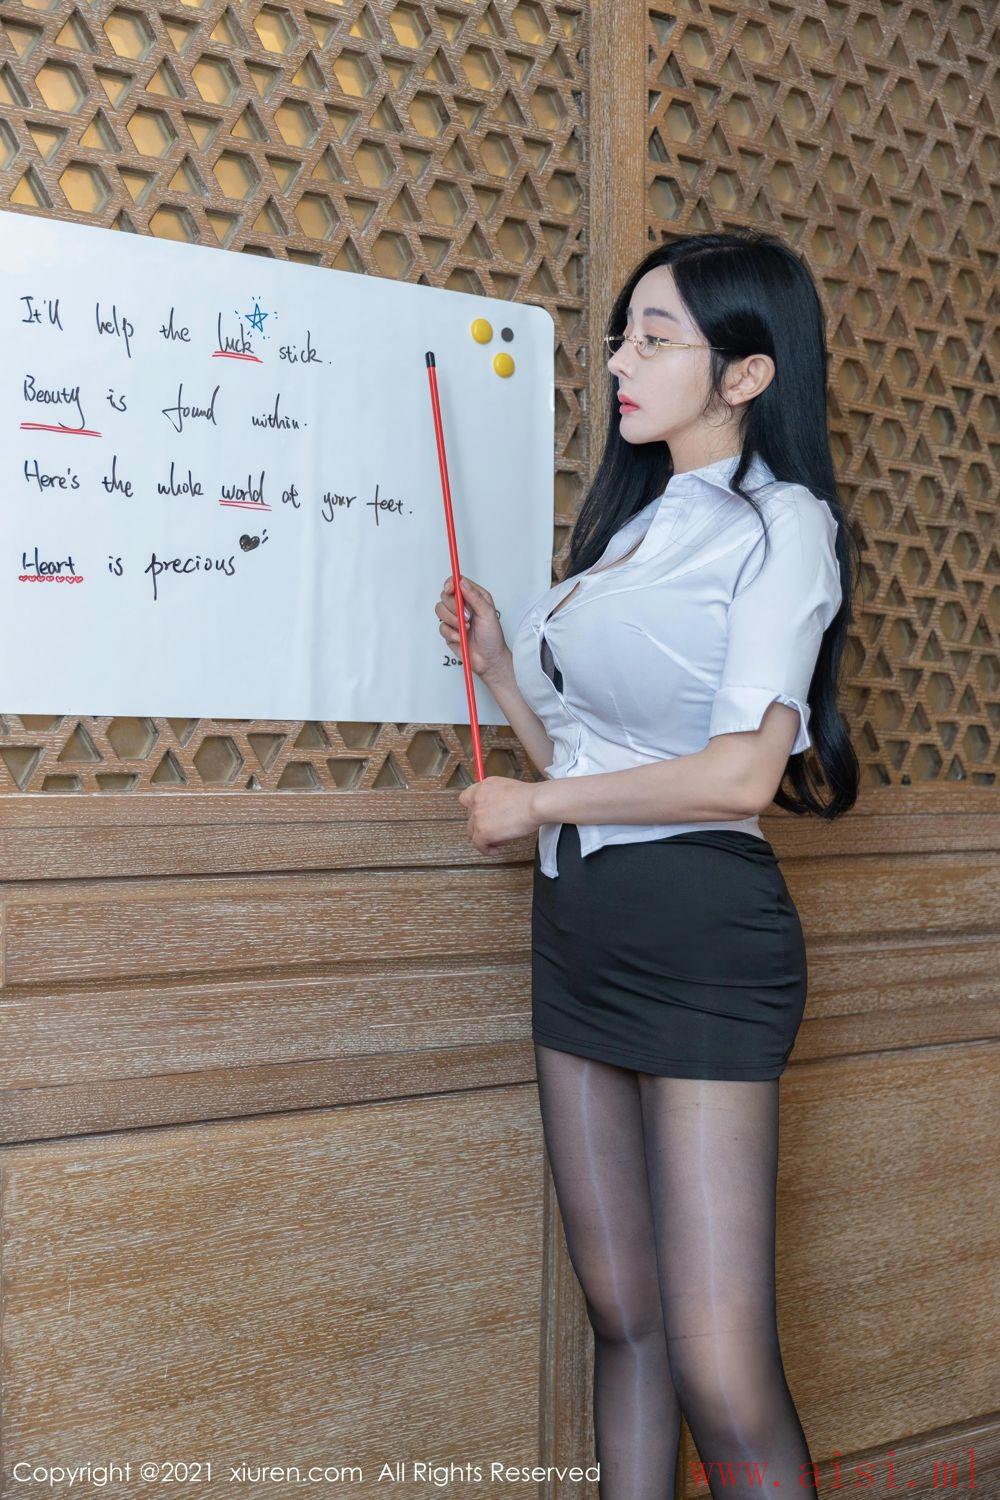 It'll help the luck stick.
Beauty is found within.
Here's the whole world at your feet.
Heart is precious
Copyright @2021 xiuren.com All Rights Reserved
www.aisi.ml